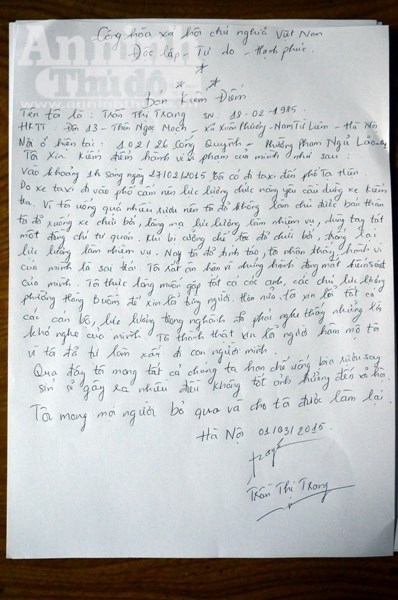 Cộng hòa xã hội chủ nghĩa Việt Nam
Độc lập - Tự do - Hạnh phúc.
Đơn Kiểm Điểm
Tên tôi là: Trần Thị Trang SN: 18-02-1985.
HKTT: Đội 13 - Thôn Ngọc Mạch - Xã Xuân Phương - Nam Từ Liêm - Hà Nội
Nơi ở hiện tại: 102/26 Cống Quỳnh - Phường Phạm Ngũ Lão
Tôi xin kiểm điểm hành vi vi phạm của mình như sau:
Vào khoảng 1h sáng ngày 27/02/2015 tôi có đi taxi đến phố Tạ Hiện
Do xe taxi đi vào phố cấm nên lực lượng chức năng yêu cầu dừng xe kiểm
tra. Vì tôi uống quá nhiều rượu nên tôi đã không làm chủ được bản thân
tôi đã xuống xe chửi bới, lăng mạ lực lượng làm nhiệm vụ, dùng tay tát
một đồng chí tự quản. Khi bị cưỡng chế tôi đã chửi bới, chống lại
lực lượng làm nhiệm vụ. Nay tôi đã tỉnh táo, tôi nhận thấy hành vi
của mình là sai trái. Tôi rất ân hận vì những hành động mất kiểm soát
của mình. Tôi thực lòng muốn gặp tất cả các anh, các chú lực lượng
phường Hàng Buồm để xin lỗi từng người. Hơn nữa, tôi xin lỗi tất cả
các cán bộ, lực lượng trong nghành đã phải nghe thấy những lời
khó nghe của mình. Tôi thành thật xin lỗi người hâm mộ tôi
vì tôi đã tự làm xấu đi con người mình.
Qua đây tôi mong tất cả chúng ta hạn chế uống bia rượu say
sỉn sẽ gây ra nhiều điều không tốt ảnh hưởng đến xã hội.
Tôi mong mọi người bỏ qua và cho tôi được làm lại.
Hà Nội 01/03/2015.
Trang
Trần Thị Trang